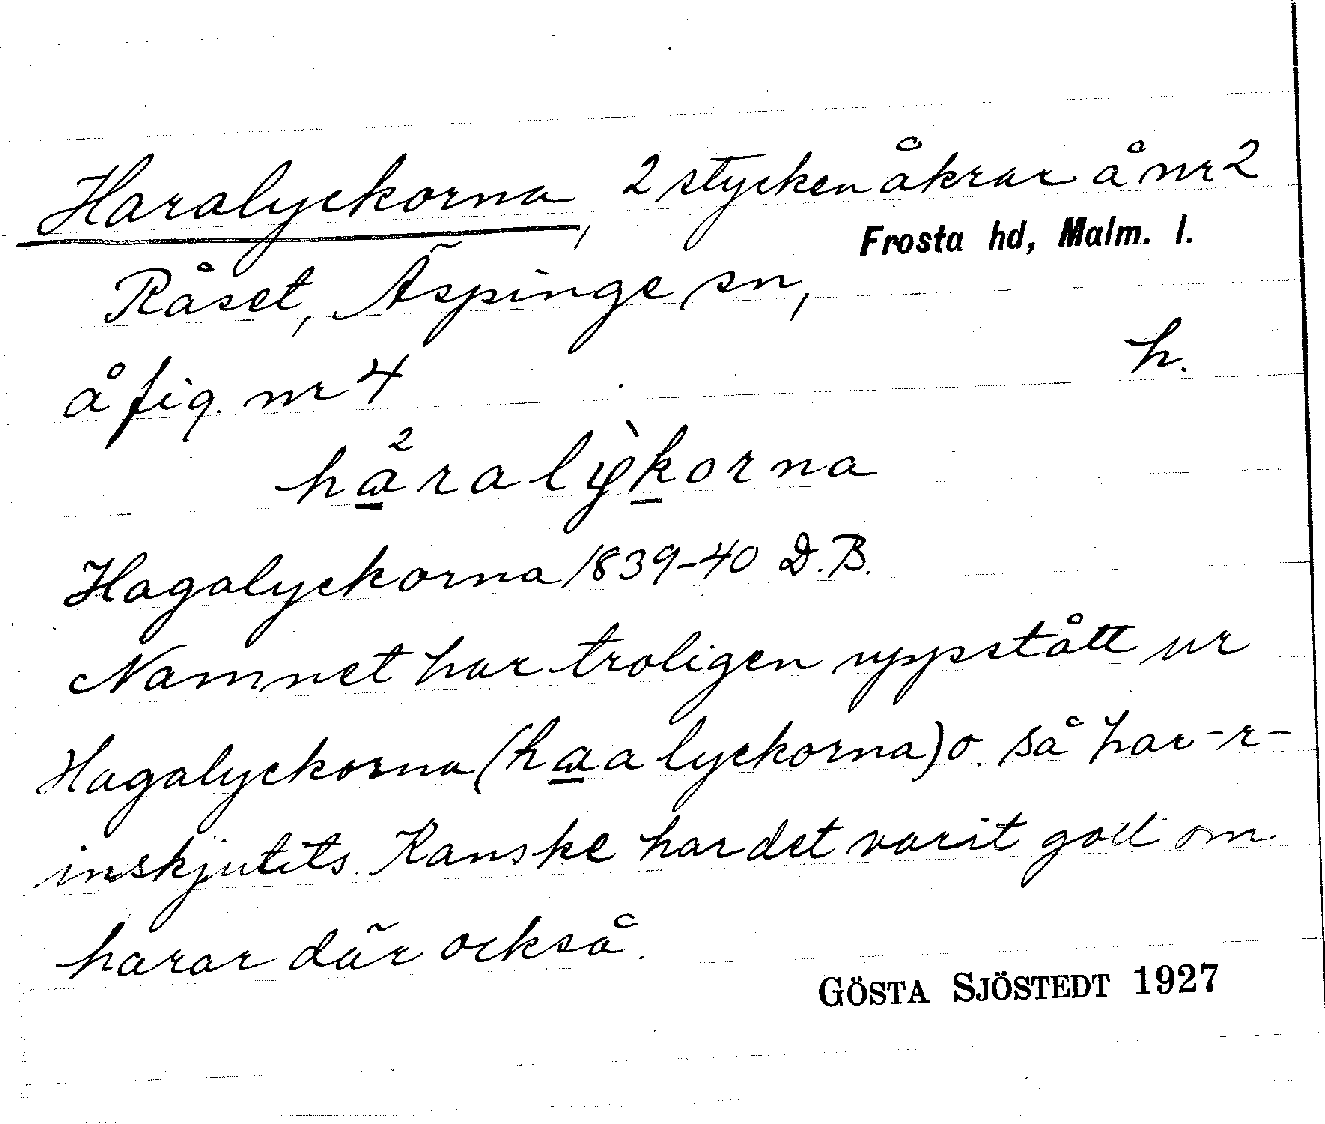 Haralyckorna, 2 stycken åkrar å nr 2
Frosta hd, Malm. l.
Råset, Äspinge sn,
å fig. nr 4
h.
håralỳkorna
Hagalyckorna 1839-40 D.B.
Namnet har troligen uppstått ur
Hagalyckorna (haa lyckorna) o. så har -r-
inskjutits. Kanske har det varit gott om
harar där också.
GÖSTA SJÖSTEDT 1927